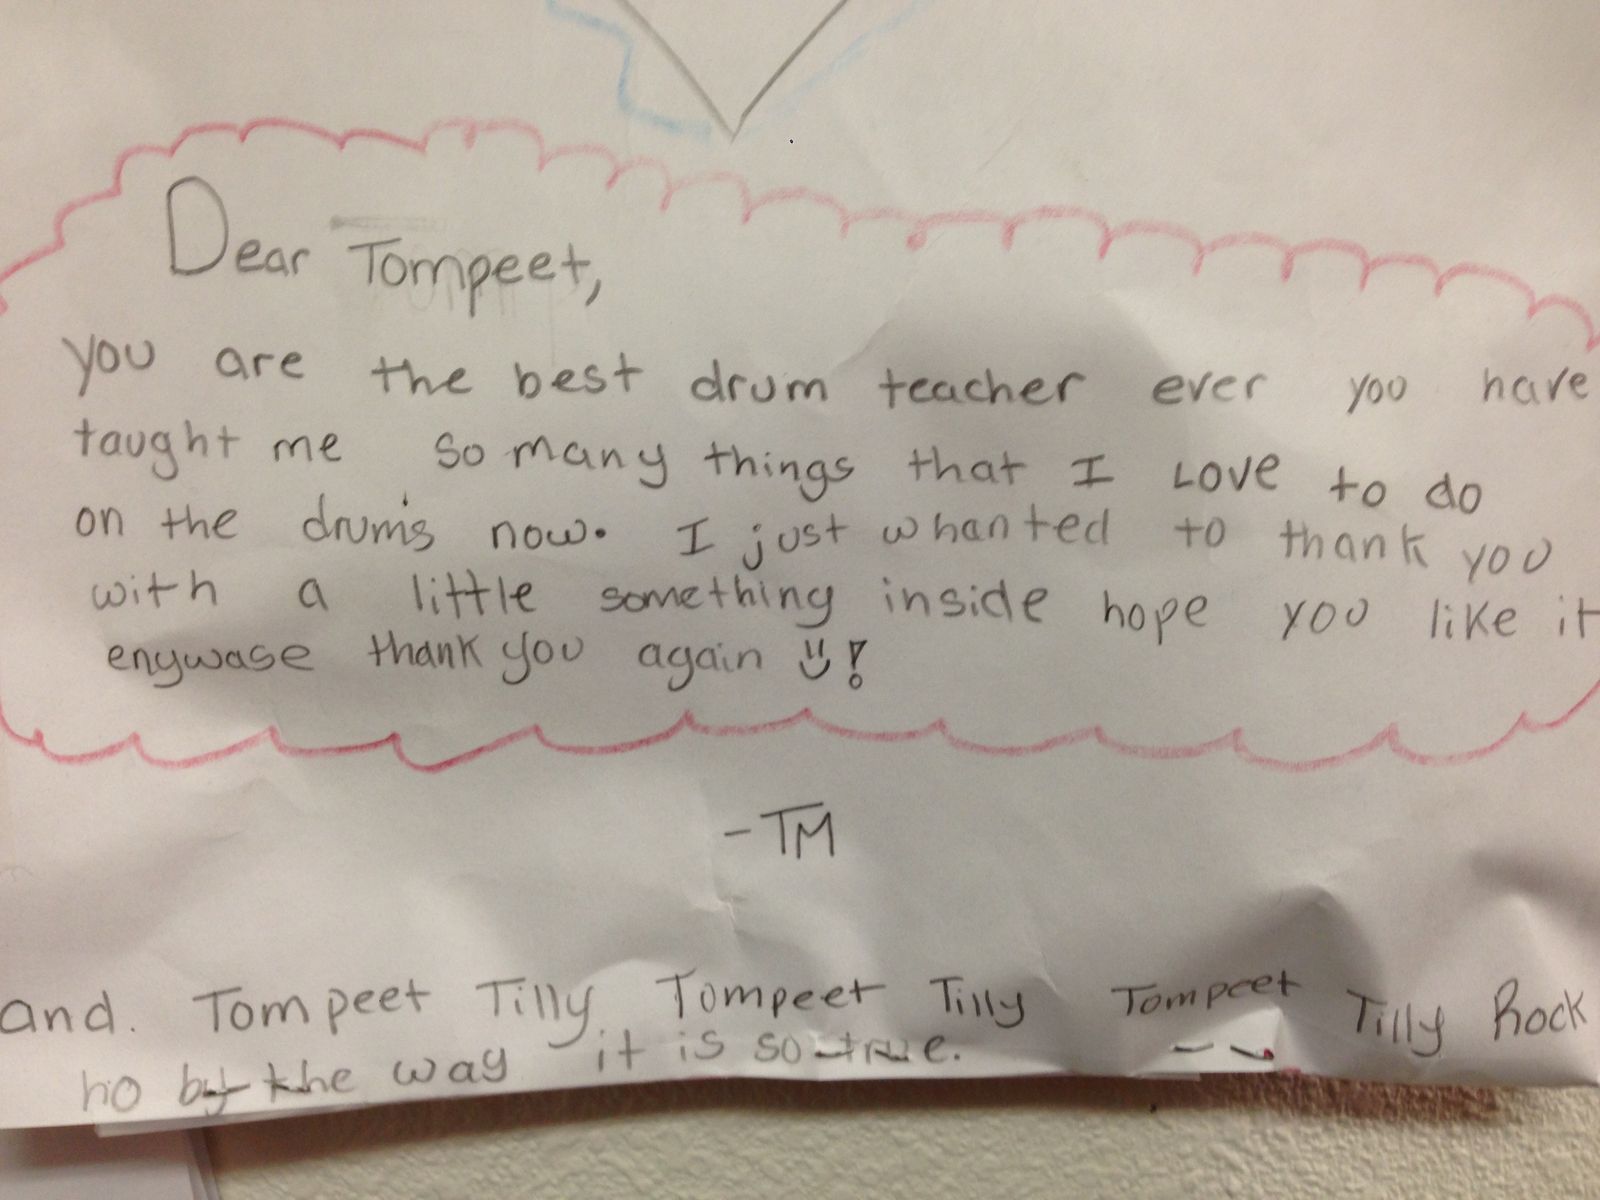 Dear Tompeet,
you are the best drum teacher ever you have
taught me so many things that I Love to do
on the drum's now. I just whanted to thank you
with a little something inside hope you like it
enywase thank you again !
-TM
and. Tompeet Tilly Tompeet Tilly Tompeet Tilly Rock
ho by the way it is so true.